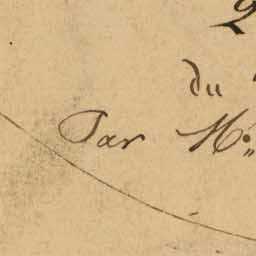 du
Par M.